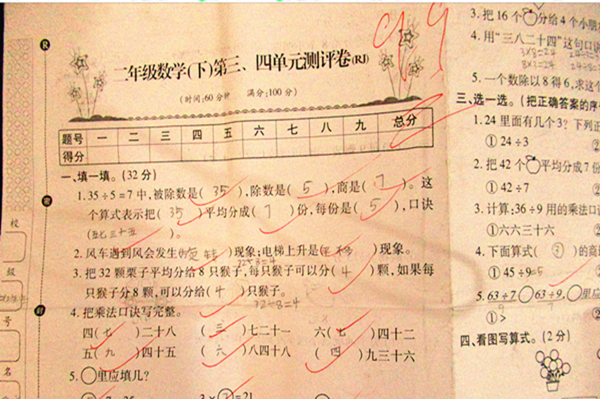 二年级数学(下)第三、四单元测评卷(RJ)
(时间:60分钟 满分:100分)
99
题号 一 二 三 四 五 六 七 八 九 总分
得分
一、填一填。(32分)
1.35÷5=7中,被除数是(35),除数是(5),商是(7)。这
个算式表示把(35)平均分成(7)份,每份是(5),口诀
(五七三十五)。
2.风车遇到风会发生(旋转)现象;电梯上升是(平移)现象。
32÷8=4
3.把32颗栗子平均分给8只猴子,每只猴子可以分(4)颗,如果每
只猴子分8颗,可以分给(4)只猴子。
32÷8=4
4.把乘法口诀写完整。
四(七)二十八 (三)七二十一 六(七)四十二
五(九)四十五 (六)八四十八 (四)九三十六
5.○里应填几?
3×(7)=21
3.把16个 分给4个小朋
4.用“三八二十四”这句口诀
3×8=24
5.一个数除以8得6,求这个
三、选一选。(把正确答案的序号
1.24里面有几个3?下列正
①24÷3
2.把42个 平均分成7份
①42÷7
3.计算:36÷9用的乘法口诀
①六六三十六
4.下面算式( )的商
①45÷9
5.63÷7○63÷9,○里应
①>
四、看图写算式。(2分)
校
级
号
名